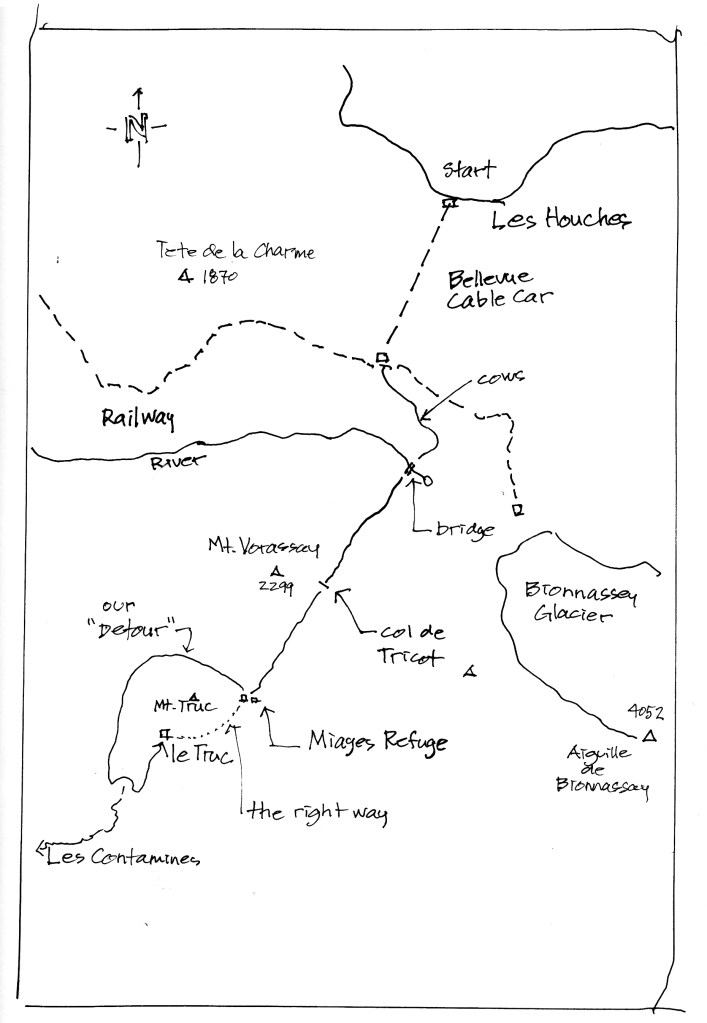 N
Start
Les Houches
Tete de la Charme
1870
Bellevue
Cable Car
cows
Railway
River
bridge
Mt. Vorassay
2299
Bionnassey
Glacier
our
"Detour"
col de
Tricot
Mt. Truc
4052
le Truc
Miages Refuge
Aiguille
de
Bionnassay
the right way
Les Contamines